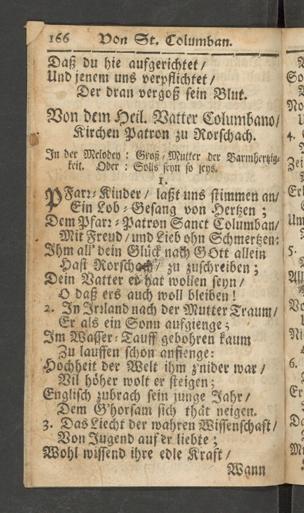 166 Von St. Columban.
Daß du hie aufgerichtet /
Und jenem uns verpflichtet /
Der dran vergoß sein Blut.
Von dem Heil. Vatter Columbano /
Kirchen Patron zu Rorschach.
In der Melodey : Groß-Mutter der Barmhertzig-
keit. Oder : Solis seyn so jeys.
1.
PFarr-Kinder / laßt uns stimmen an /
Ein Lob-Gesang von Hertzen ;
Dem Pfarr-Patron Sanct Columban /
Mit Freud / und Lieb ohn Schmertzen:
Ihm all dein Glück nach Gott allein
Hast Rorschach / zu zuschreiben ;
Dein Vatter er hat wollen seyn /
O daß ers auch woll bleiben !
2. In Irrland nach der Mutter Traum /
Er als ein Sonn aufgienge ;
Im Wasser-Tauff gebohren kaum
Zu lauffen schon anfienge:
Hochheit der Welt ihm z'nider war /
Vil höher wolt er steigen ;
Englisch zubrach sein junge Jahr /
Dem G'horsam sich thät neigen.
3. Das Liecht der wahren Wissenschaft /
Von Jugend auf er liebte ;
Wohl wissend ihre edle Kraft /
Wann